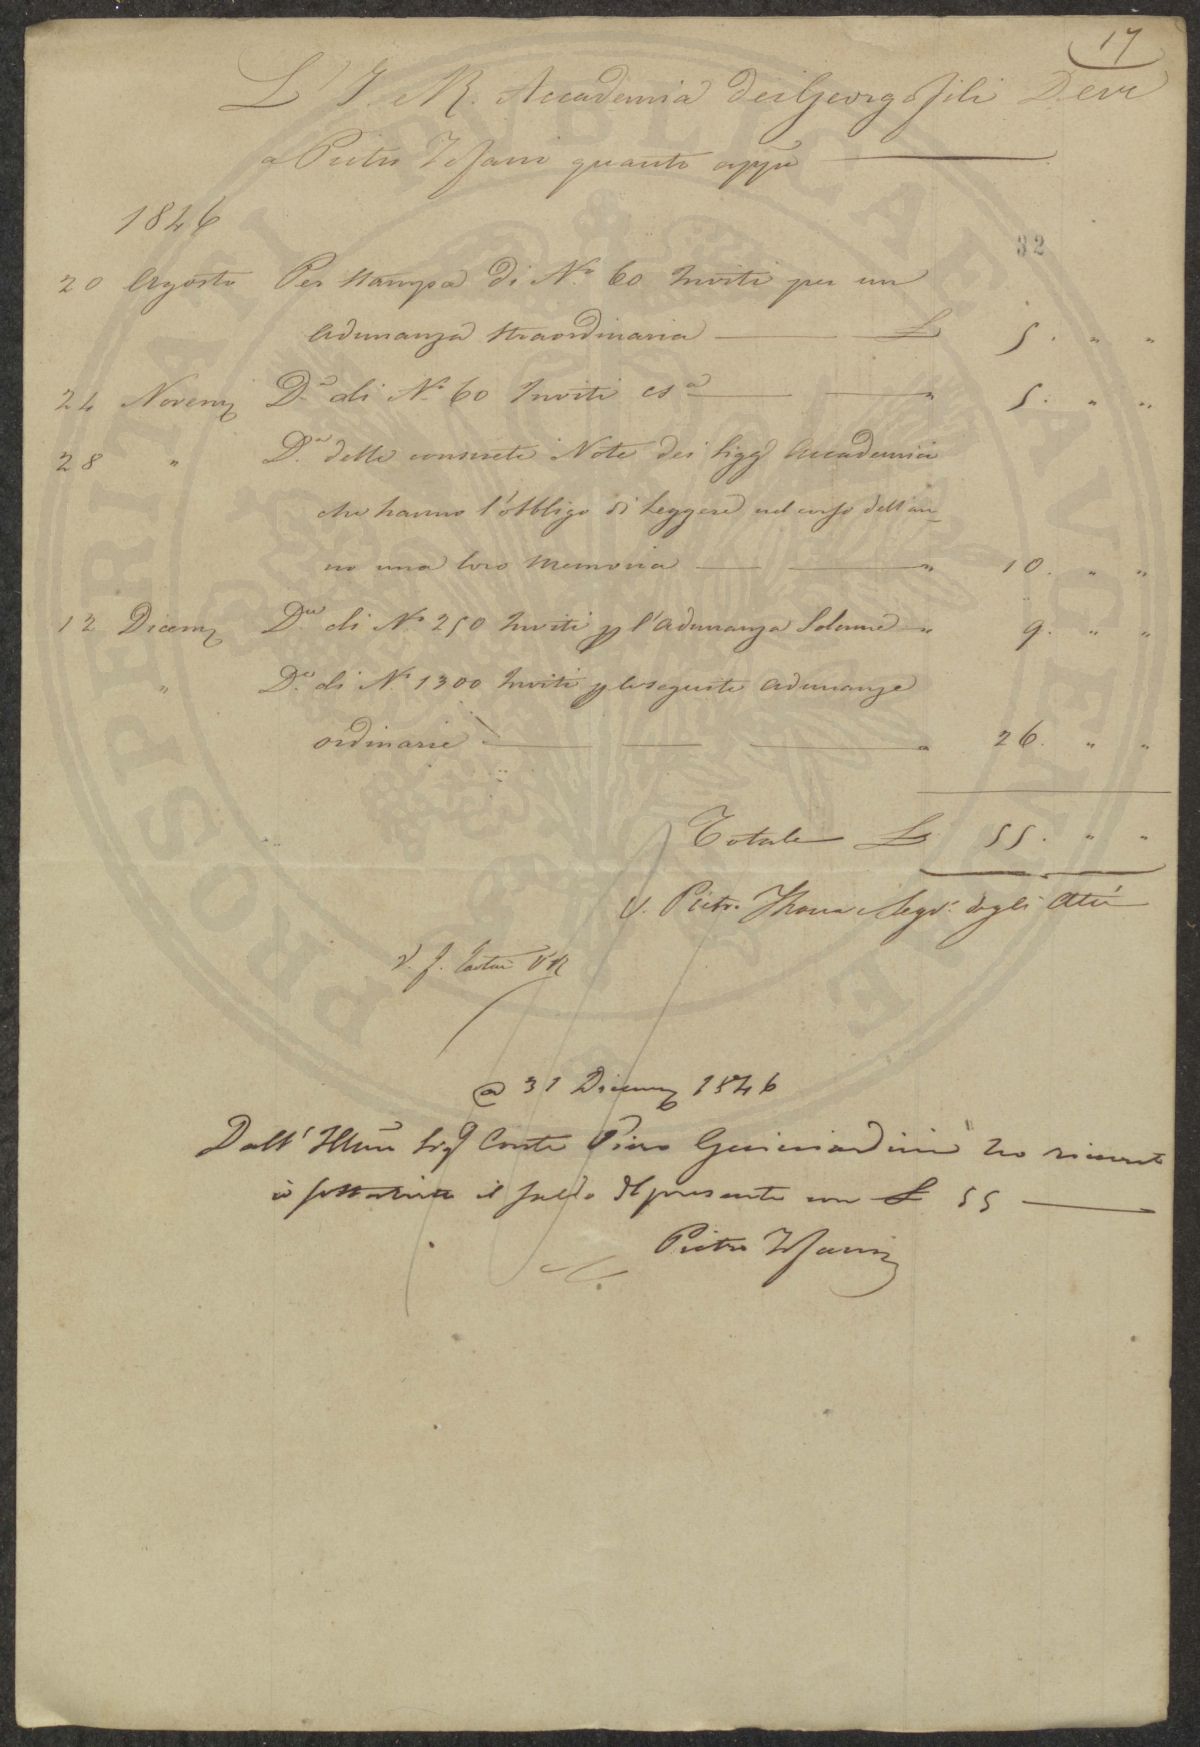 17
L' I. R. Accademia dei Georgofili Deve
a Pietro quanto app.e
1846
32
20 Agosto Per stampa di N.o 60 Inviti per un
Adunanza straordinaria £ 5. " "
24 Novem. D.a di N.o 60 Inviti cs.a " 5. " "
28 " D.a delle consuete Note dei Sigg. Accademici
che hanno l'obbligo di Leggere nel corso dell'an-
no una loro Memoria " 10. " "
12 Dicem. D.a di N.o 250 Inviti p l'Adunanza Solenne " 9. " "
" D.a di N.o 1300 Inviti p le seguite Adunanze
ordinarie " 26. " "
Totale £ 55. " "
V. Pietro Seg.o degli Atti
V. J.
a 31 Dicem. 1846
Dall' Illmo Sig Conte Piero Guicciardini ho ricevuto
io sottoscritto il saldo del presente con £ 55
Pietro
PROSPERITATI PVBLICAE AVGENDAE